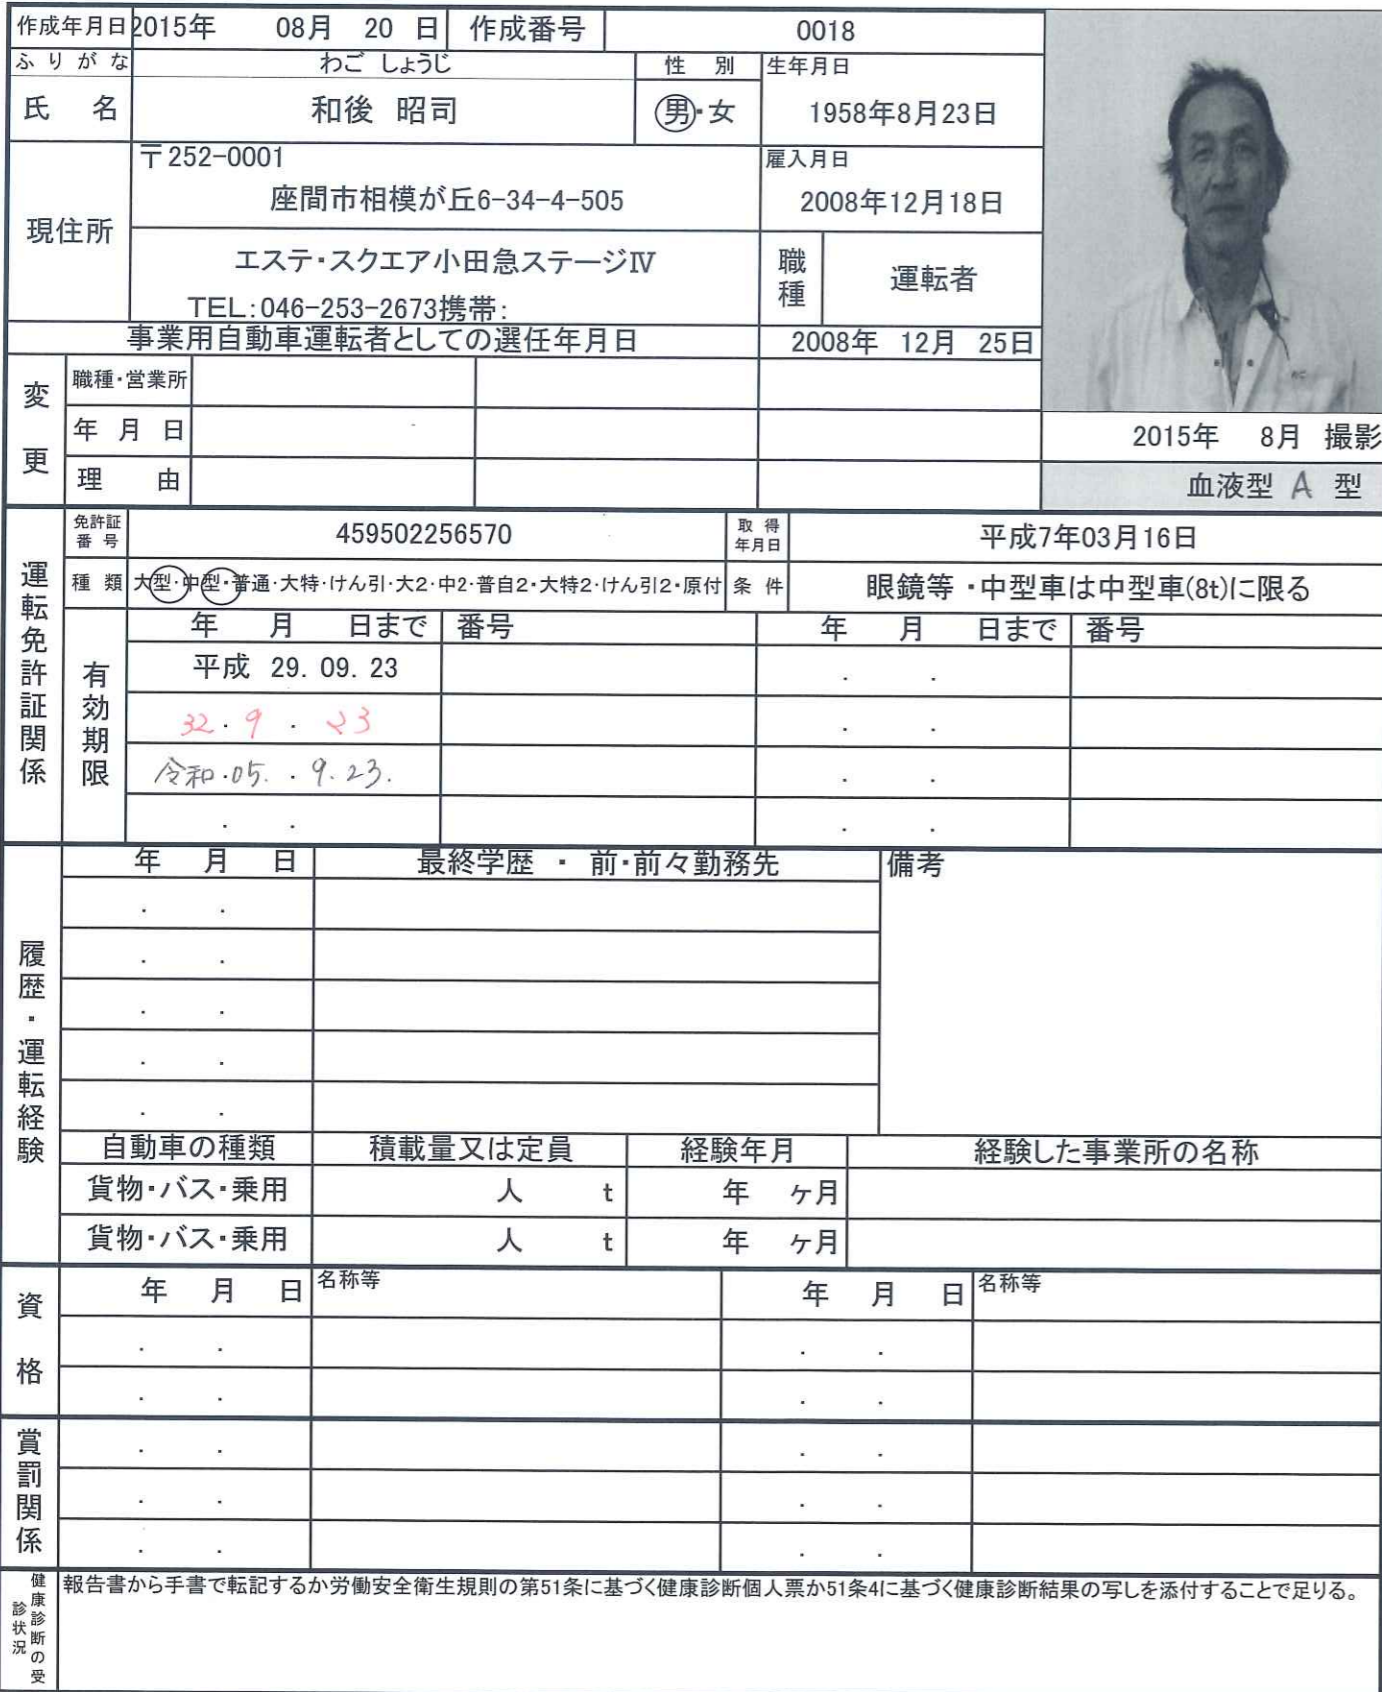 作成年月日 2015年 08月 20 日 作成番号 0018
ふりがな わご しょうじ 性 別 生年月日
氏 名 和後 昭司 男・女 1958年8月23日
現住所 〒252-0001 雇入月日
座間市相模が丘6-34-4-505 2008年12月18日
エステ・スクエア小田急ステージⅣ 職種 運転者
TEL:046-253-2673携帯:
事業用自動車運転者としての選任年月日 2008年 12月 25日
変更 職種・営業所
年 月 日
2015年 8月 撮影
理 由
血液型 A 型
運転免許証関係 免許証番号 459502256570 取得年月日 平成7年03月16日
種 類 大型・中型・普通・大特・けん引・大2・中2・普自2・大特2・けん引2・原付 条 件 眼鏡等 ・中型車は中型車(8t)に限る
有効期限 年 月 日まで 番号 年 月 日まで 番号
平成 29. 09. 23 . .
32 . 9 . 23 . .
令和.05. . 9.23. . .
. . . .
履歴・運転経験 年 月 日 最終学歴 ・ 前・前々勤務先 備考
. .
. .
. .
. .
. .
自動車の種類 積載量又は定員 経験年月 経験した事業所の名称
貨物・バス・乗用 人 t 年 ヶ月
貨物・バス・乗用 人 t 年 ヶ月
資格 年 月 日 名称等 年 月 日 名称等
. . . .
. . . .
賞罰関係 . . . .
. . . .
. . . .
健康診断の受診状況 報告書から手書で転記するか労働安全衛生規則の第51条に基づく健康診断個人票か51条4に基づく健康診断結果の写しを添付することで足りる。